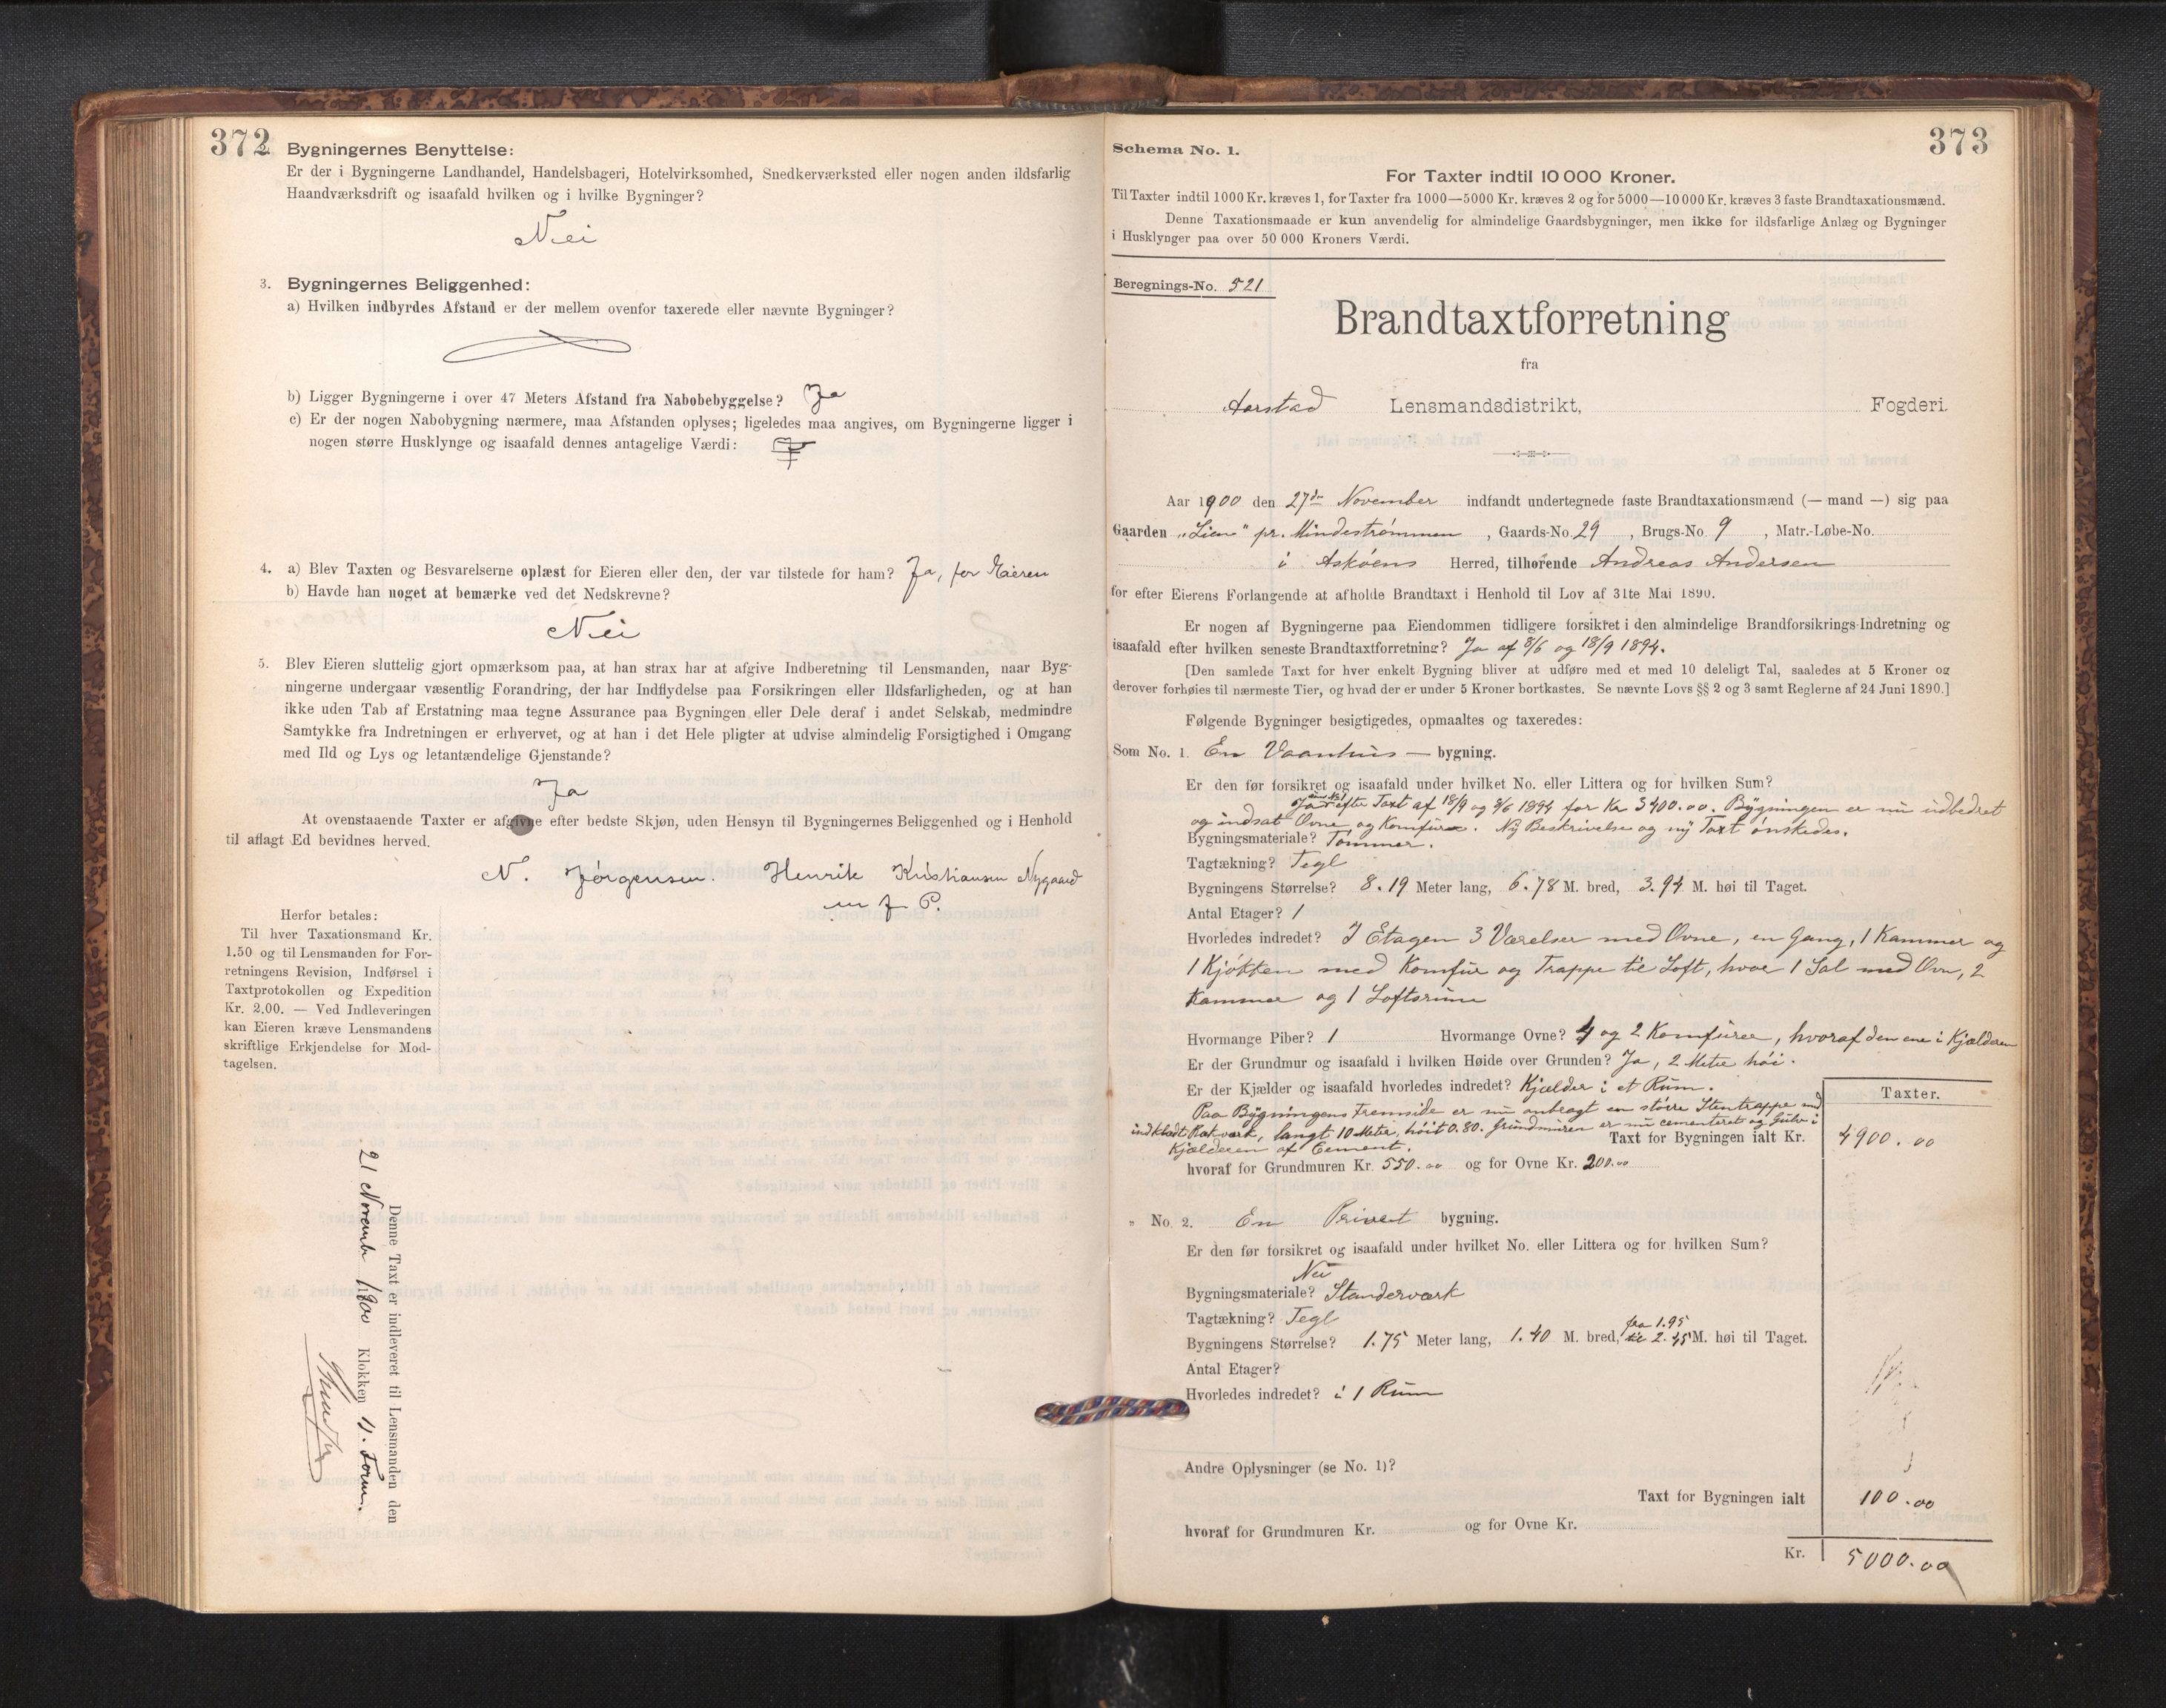 372
Bygningernes Benyttelse:
Er der i Bygningerne Landhandel, Handelsbageri, Hotelvirksomhed, Snedkerværksted eller nogen anden ildsfarlig
Haandværksdrift og isaafald hvilken og i hvilke Bygninger?
Nei
3. Bygningernes Beliggenhed:
a) Hvilken indbyrdes Afstand er der mellem ovenfor taxerede eller nævnte Bygninger?
b) Ligger Bygningerne i over 47 Meters Afstand fra Nabobebyggelse? Ja
c) Er der nogen Nabobygning nærmere, maa Afstanden oplyses; ligeledes maa angives, om Bygningerne ligger i
nogen større Husklynge og isaafald dennes antagelige Værdi:
4. a) Blev Taxten og Besvarelserne oplæst for Eieren eller den, der var tilstede for ham? Ja, for Eieren
b) Havde han noget at bemærke ved det Nedskrevne?
Nei
5. Blev Eieren sluttelig gjort opmærksom paa, at han strax har at afgive Indberetning til Lensmanden, naar Byg-
ningerne undergaar væsentlig Forandring, der har Indflydelse paa Forsikringen eller Ildsfarligheden, og at han
ikke uden Tab af Erstatning maa tegne Assurance paa Bygningen eller Dele deraf i andet Selskab, medmindre
Samtykke fra Indretningen er erhvervet, og at han i det Hele pligter at udvise almindelig Forsigtighed i Omgang
med Ild og Lys og letantændelige Gjenstande?
Ja
At ovenstaaende Taxter er afgivne efter bedste Skjøn, uden Hensyn til Bygningernes Beliggenhed og i Henhold
til aflagt Ed bevidnes herved.
N. Jörgensen. Henrik Kristiansen Nygaard
m f P.
Herfor betales:
Til hver Taxationsmand Kr.
1.50 og til Lensmanden for For-
retningens Revision, Indførsel i
Taxtprotokollen og Expedition
Kr. 2.00. — Ved Indleveringen
kan Eieren kræve Lensmandens
skriftlige Erkjendelse for Mod-
tagelsen.
Denne Taxt er indleveret til Lensmanden den
21 Novemb 1900 Klokken 11. Form.
373
Schema No. 1.
For Taxter indtil 10 000 Kroner.
Til Taxter indtil 1000 Kr. kræves 1, for Taxter fra 1000—5000 Kr. kræves 2 og for 5000—10 000 Kr. kræves 3 faste Brandtaxationsmænd.
Denne Taxationsmaade er kun anvendelig for almindelige Gaardsbygninger, men ikke for ildsfarlige Anlæg og Bygninger
i Husklynger paa over 50 000 Kroners Værdi.
Beregnings-No. 521
Brandtaxtforretning
fra
Aarstad Lensmandsdistrikt, Fogderi.
Aar 1900 den 27de November indfandt undertegnede faste Brandtaxationsmænd (— mand —) sig paa
Gaarden "Lien" pr. Mindestrømmen, Gaards-No. 29, Brugs-No. 9, Matr.-Løbe-No.
i Askøens Herred, tilhørende Andreas Andersen
for efter Eierens Forlangende at afholde Brandtaxt i Henhold til Lov af 31te Mai 1890.
Er nogen af Bygningerne paa Eiendommen tidligere forsikret i den almindelige Brandforsikrings-Indretning og
isaafald efter hvilken seneste Brandtaxtforretning? Ja af 8/6 og 18/9 1894.
[Den samlede Taxt for hver enkelt Bygning bliver at udføre med et med 10 deleligt Tal, saaledes at 5 Kroner og
derover forhøies til nærmeste Tier, og hvad der er under 5 Kroner bortkastes. Se nævnte Lovs §§ 2 og 3 samt Reglerne af 24 Juni 1890.]
Følgende Bygninger besigtigedes, opmaaltes og taxeredes:
Som No. 1. En Vaanhus — bygning.
Er den før forsikret og isaafald under hvilket No. eller Littera og for hvilken Sum?
Ja efter Taxt af 18/9 og 8/6 1894 for Kr 3400.00. Bygningen er nu udbedret
og indsat Ovne og Komfür. Ny Beskrivelse og ny Taxt ønskedes.
Bygningsmateriale? Tømmer.
Tagtækning? Tegl
Bygningens Størrelse? 8.19 Meter lang, 6.78 M. bred, 3.94 M. høi til Taget.
Antal Etager? 1
Hvorledes indredet? I Etagen 3 Værelser med Ovne, en Gang, 1 Kammer og
1 Kjøkken med Komfür og Trappe til Loft, hvor 1 Sal med Ovn, 2
Kammer og 1 Loftsrüm
Hvormange Piber? 1 Hvormange Ovne? 4 og 2 Komfürer, hvoraf den ene i Kjælderen
Er der Grundmur og isaafald i hvilken Høide over Grunden? Ja, 2 Meter høi.
Er der Kjælder og isaafald hvorledes indredet? Kjælder i et Rüm.
Taxter.
Paa Bygningens Fremside er nu anbragt en større Stentrappe med
indklædt Rakværk, langt 10 Meter, höit 0.80. Grundmüren er nu cementeret og Gülv i
Kjælderen af Cement.
Taxt for Bygningen ialt Kr. 4900.00
hvoraf for Grundmuren Kr. 550.00 og for Ovne Kr. 200.00
" No. 2. En Privet bygning.
Er den før forsikret og isaafald under hvilket No. eller Littera og for hvilken Sum?
Nei
Bygningsmateriale? Standerværk
Tagtækning? Tegl
Bygningens Størrelse? 1.75 Meter lang, 1.40 M. bred, fra 1.95 til 2.45 M. høi til Taget.
Antal Etager?
Hvorledes indredet? i 1 Rüm
Andre Oplysninger (se No. 1)?
Taxt for Bygningen ialt 100.00
hvoraf for Grundmuren Kr. og for Ovne Kr.
Kr. 5000.00